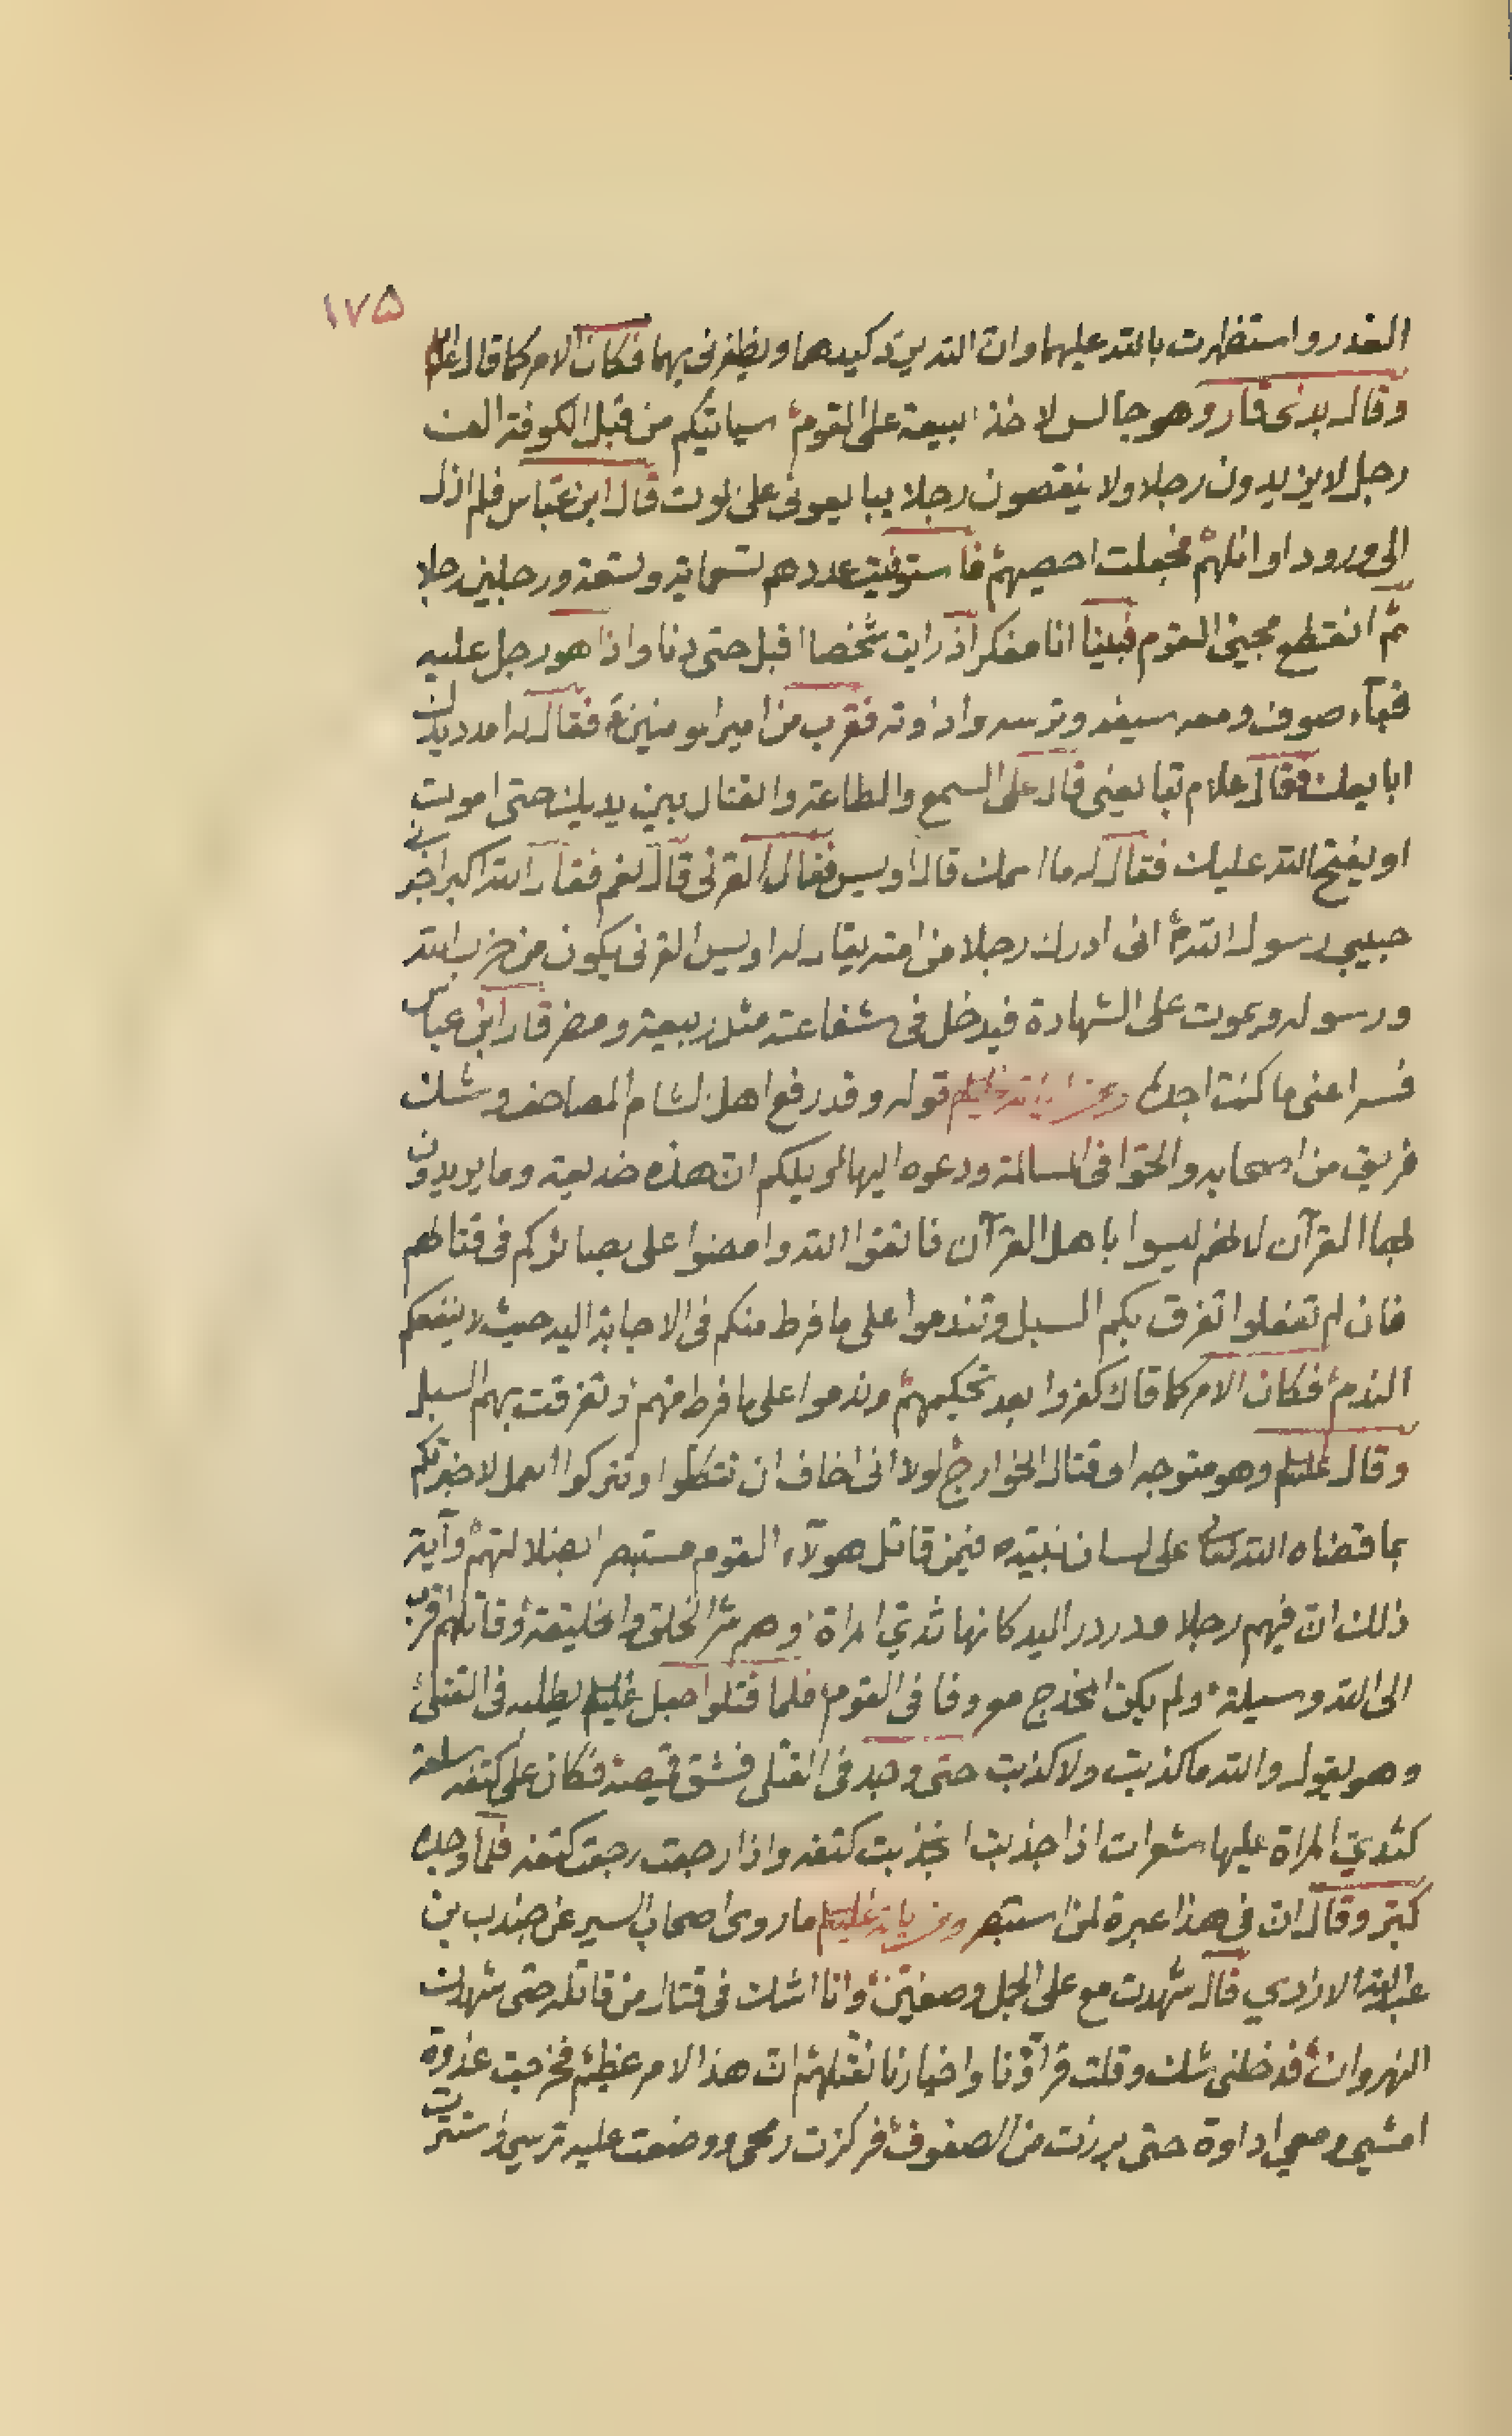 ١٧۵
الغدر واستظهرت بالله عليهما وان الله يرد كيدهما ويظفرنى بهما فكان الامر كما قال
وقال بذى قار وهو جالس لاخذ البيعة على القوم سياتيكم من قبل الكوفة الف
رجل لا يزيدون رجلا ولا ينقصون رجلا يبايعونى على الموت قال ابن عباس فلم ازل
الى ورود اوائلهم فجعلت احصيهم فاستوفيت عددهم تسعمائة وتسعة ورجلين رجلا
ثم انقطع مجيئ القوم فبينا انا مفكر اذ رايت شخصا اقبل حتى دنا واذا هو رجل عليه
قباء صوف ومعه سيفه وترسه واداوته فقرب من امير المومنين فقال له امدد يدك
ابايعك فقال علام تبايعنى قال على السمع والطاعة والقتال بين يديك حتى اموت
او يفتح الله عليك فقال له ما اسمك قال اويس فقال القرنى قال نعم فقال الله اكبر اخبرنى
حبيبي رسول الله انى ادرك رجلا من امته يقال له اويس القرنى يكون من حزب الله
ورسوله ويموت على الشهادة فيدخل فى شفاعته مثل ربيعة ومضر قال ابن عباس
فسرا عنى ما كنت اجده قوله وقد رفع اهل الشام المصاحف وشك
فريق من اصحابه والحوا فى المسالمة ودعوه اليها لويلكم ان هذه خديعة وما يريدون
لهما القرآن لانهم ليسوا باهل القرآن فاتقوا الله وامضوا على بصائركم فى قتالهم
فان لم تفعلوا تفرق بكم السبل وتندموا على ما فرط منكم فى الاجابة اليه حيث لا ينفعكم
الندم فكان الامر كما قال كفروا بعد تحكيمهم وندموا على ما فرط منهم وتفرقت بهم السبل
وقال عليلم وهو متوجه الى قتال الخوارج لولا انى اخاف ان تتكلوا وتتركوا العمل لاخبرتكم
بما قضاه الله تعالى على لسان نبيه فيمن قاتل هولآء القوم مستبصرا بضلالتهم وآية
ذلك ان فيهم رجلا مدردر اليد كانها ثدي امراة وهم شر الخلق والخليقة وقاتلهم اقرب
الى الله وسيلة ولم يكن المخدج معروفا فى القوم فلما قتلوا جعل عليلم يطلبه فى القتلى
وهو يقول والله ما كذبت ولا كذبت حتى وجد فى القتلى فشق قميصه فكان على كتفه سلعة
كثدي المراة عليها شعرات اذا جذبت انجذبت كتفه واذا رجعت رجعت كتفه فلما وجده
كبر وقال ان فى هذا عبرة لمن استبصر ومن آياته عليلم ما روى اصحاب السير عن جندب بن
عبدالله الازدي قال شهدت مع على الجمل وصفين وانا اشك فى قتال من قاتله حتى شهدت
النهروان فدخلنى شك وقلت قرآؤنا واخيارنا نقتلهم ان هذا الامر عظيم فخرجت غدوة
امشي ومعي اداوة حتى برزت من الصفوف فركزت رمحى ووضعت عليه ترسي واستترت